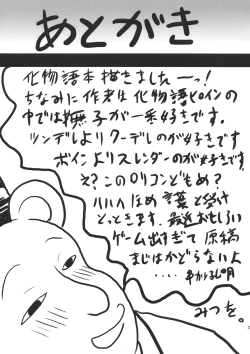 あとがき
化物語本描きましたーっ!
ちなみに作者は化物語ヒロインの
中では撫子が一番好きです。
ツンデレよりクーデレのが好きです
ボインよりスレンダーのが好きです。
え?このロリコンどもめ?
ハハハほめ言葉と受け
とっときます。最近おもしろい
ゲーム出すぎて原稿
まじはかどらない人
みつを。